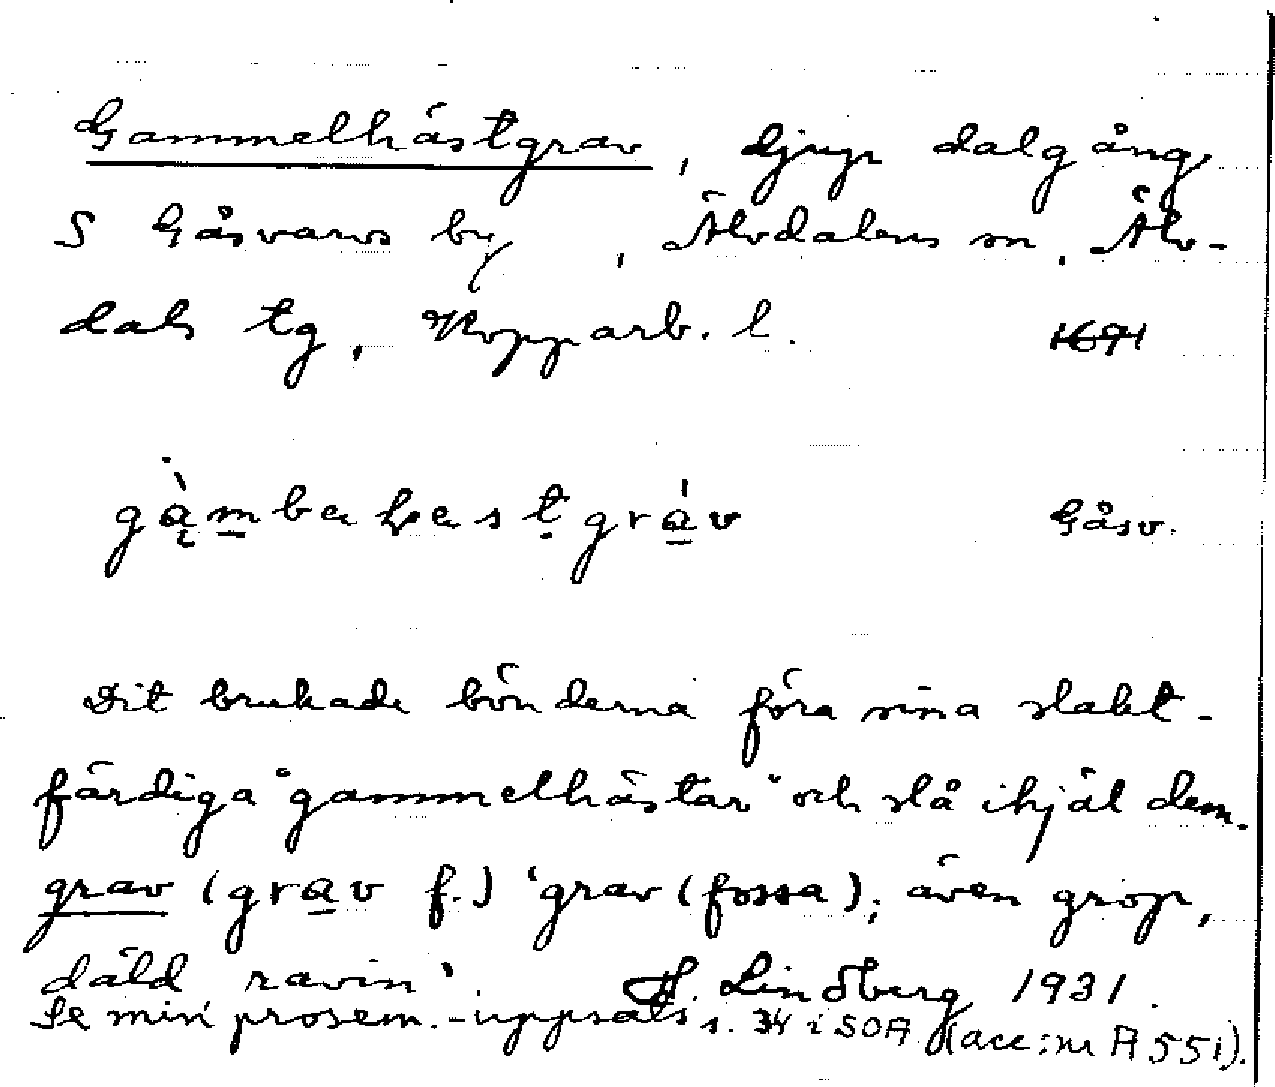 Gammelhästgrav, djup dalgång
S Gåsvarvs by, Älvdalens sn, Älv-
dals tg, Kopparb. l. 1691
Gåsv.
Dit brukade bönderna föra sina slakt-
färdiga "gammelhästar" och slå ihjäl dem.
grav (grav f.) 'grav (fossa); även grop,
däld ravin'. Lindberg 1931.
Se min prosem.-uppsats s. 34 i SOA (acc:nr A 551).